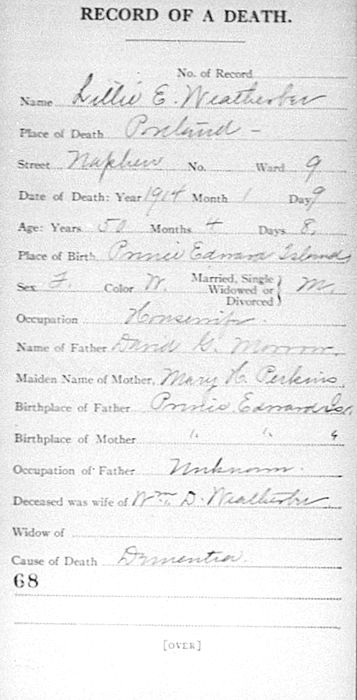 RECORD OF A DEATH.
No. of Record
Name Lillie E. Weatherbee
Place of Death Portland -
Street No. Ward 9
Date of Death: Year 1914 Month 1 Day 9
Age: Years 50 Months 4 Days 8,
Place of Birth Prince Edward Island,
Sex F. Color W. Married, Single Widowed or Divorced } M.
Occupation Housewife.
Name of Father David G. Morrow.
Maiden Name of Mother, Mary H. Perkins
Birthplace of Father Prince Edward Is.
Birthplace of Mother " " "
Occupation of Father Unknown.
Deceased was wife of Wm. D. Weatherbee
Widow of
Cause of Death Dementia.
68
[OVER]